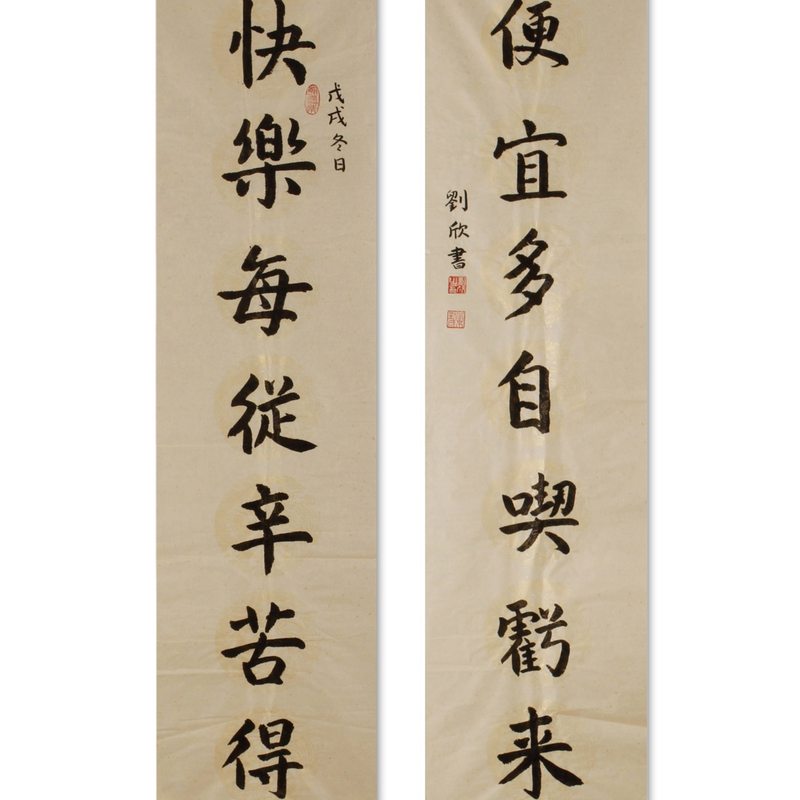 快樂每從辛苦得
戊戌冬日
便宜多自喫虧来
劉欣書